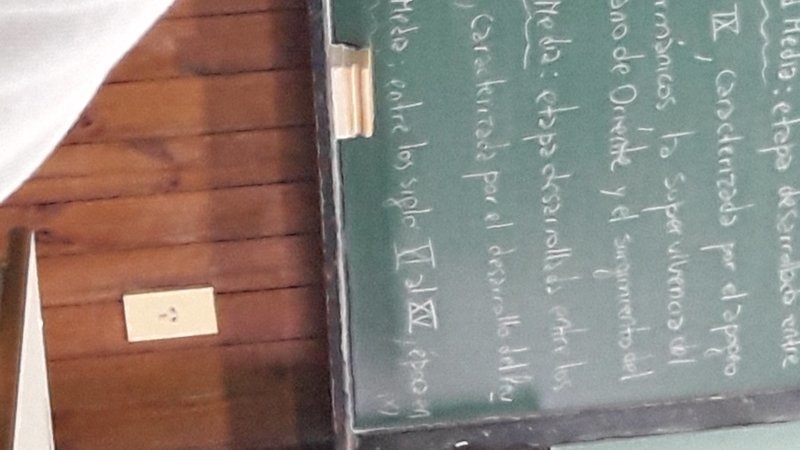 Media: etapa desarrollada entre
IX, caracterizada por el apogeo
la supervivencia del
de Oriente y el surgimiento del
Media: etapa desarrollada entre los
, caracterizada por el desarrollo del
Media: entre los siglo VI al XV, época en